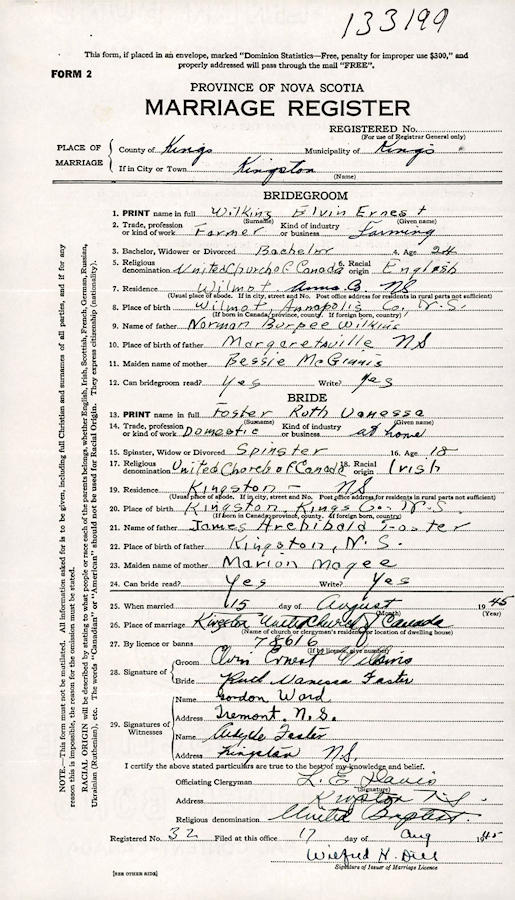 133199
This form, if placed in an envelope, marked "Dominion Statistics—Free, penalty for improper use $300," and
properly addressed will pass through the mail "FREE".
FORM 2
PROVINCE OF NOVA SCOTIA
MARRIAGE REGISTER
REGISTERED No.
(For use of Registrar General only)
PLACE OF MARRIAGE
County of Kings Municipality of Kings
If in City or Town Kingston
(Name)
BRIDEGROOM
1. PRINT name in full Wilkins Elvin Ernest
(Surname) (Given name)
2. Trade, profession or kind of work Farmer Kind of industry or business Farming
3. Bachelor, Widower or Divorced Bachelor 4. Age 24
5. Religious denomination United Church of Canada 6. Racial origin English
7. Residence Wilmot Anna. Co. NS
(Usual place of abode. If in city, street and No. Post office address for residents in rural parts not sufficient)
8. Place of birth Wilmot, Annapolis Co. N.S.
(If born in Canada, province, county, if foreign born, country)
9. Name of father Norman Burpee Wilkins
10. Place of birth of father Margaretsville NS
11. Maiden name of mother Bessie McGinnis
12. Can bridegroom read? Yes Write? Yes
BRIDE
13. PRINT name in full Foster Ruth Vanessa
(Surname) (Given name)
14. Trade, profession or kind of work Domestic Kind of industry or business at home
15. Spinster, Widow or Divorced Spinster 16. Age 18
17. Religious denomination United Church of Canada 18. Racial origin Irish
19. Residence Kingston - NS
(Usual place of abode. If in city, street and No. Post office address for residents in rural parts not sufficient)
20. Place of birth Kingston, Kings Co. N.S.
(If born in Canada, province, county. If foreign born, country)
21. Name of father James Archibald Foster
22. Place of birth of father Kingston, N.S.
23. Maiden name of mother Marion Magee
24. Can bride read? Yes Write? Yes
25. When married 15 day of August 1945
(Month) (Year)
26. Place of marriage Kingston United Church of Canada
(Name of church or clergyman's residence or location of dwelling house)
27. By licence or banns 78616
(If by licence, give number)
28. Signature of Groom Elvin Ernest Wilkins
Bride Ruth Vanessa Foster
29. Signatures of Witnesses
Name Gordon Ward
Address Tremont. N.S.
Name Foster
Address Kingston NS.
I certify the above stated particulars are true to the best of my knowledge and belief.
Officiating Clergyman L. E. Davis
(Signature)
Address Kingston N.S.
Religious denomination United Baptist.
Registered No. 32 Filed at this office 17 day of Aug 1945
Wilfred H. Dill
Signature of Issuer of Marriage Licence
[SEE OTHER SIDE]
NOTE.—This form must not be mutilated. All information asked for is to be given, including full Christian and surnames of all parties, and if for any
reason this is impossible, the reason for the omission must be stated.
RACIAL ORIGIN will be described by stating to what people or race each of the parents belongs, whether English, Irish, Scottish, French, German, Russian,
Ukrainian (Ruthenian), etc. The words "Canadian" or "American" should not be used for Racial Origin. They express citizenship (nationality).